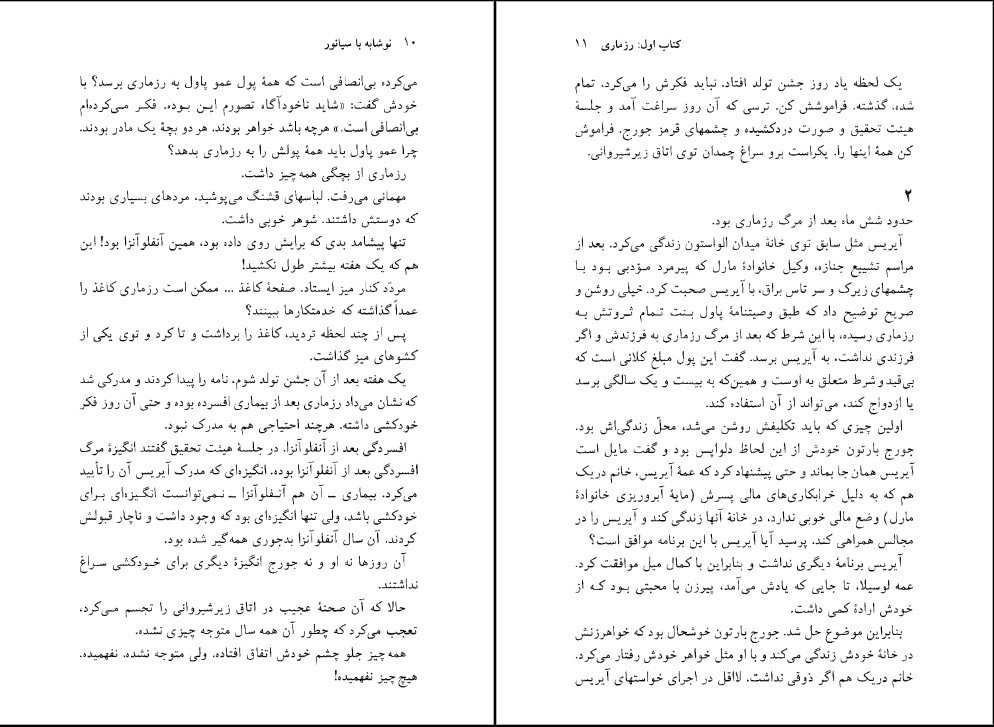 ۱۰ نوشابه با سیانور
می‌کرد، بی‌انصافی است که همهٔ پول عمو پاول به رزماری برسد؟ با
خودش گفت: «شاید ناخودآگاه تصورم این بوده. فکر می‌کرده‌ام
بی‌انصافی است.» هرچه باشد خواهر بودند. هر دو بچهٔ یک مادر بودند.
چرا عمو پاول باید همهٔ پولش را به رزماری بدهد؟
رزماری از بچگی همه‌چیز داشت.
مهمانی می‌رفت. لباسهای قشنگ می‌پوشید، مردهای بسیاری بودند
که دوستش داشتند. شوهر خوبی داشت.
تنها پیشامد بدی که برایش روی داده بود، همین آنفلوآنزا بود! این
هم که یک هفته بیشتر طول نکشید!
مردّد کنار میز ایستاد. صفحهٔ کاغذ ... ممکن است رزماری کاغذ را
عمداً گذاشته که خدمتکارها ببینند؟
پس از چند لحظه تردید، کاغذ را برداشت و تا کرد و توی یکی از
کشوهای میز گذاشت.
یک هفته بعد از آن جشن تولد شوم، نامه را پیدا کردند و مدرکی شد
که نشان می‌داد رزماری بعد از بیماری افسرده بوده و حتی آن روز فکر
خودکشی داشته. هرچند احتیاجی هم به مدرک نبود.
افسردگی بعد از آنفلوآنزا. در جلسهٔ هیئت تحقیق گفتند انگیزهٔ مرگ
افسردگی بعد از آنفلوآنزا بوده. انگیزه‌ای که مدرک آیریس آن را تأیید
می‌کرد. بیماری ــ آن هم آنفلوآنزا ــ نمی‌توانست انگیزه‌ای برای
خودکشی باشد، ولی تنها انگیزه‌ای بود که وجود داشت و ناچار قبولش
کردند. آن سال آنفلوآنزا بدجوری همه‌گیر شده بود.
آن روزها نه او و نه جورج انگیزهٔ دیگری برای خودکشی سراغ
نداشتند.
حالا که آن صحنهٔ عجیب در اتاق زیرشیروانی را تجسم می‌کرد،
تعجب می‌کرد که چطور آن همه سال متوجه چیزی نشده.
همه‌چیز جلو چشم خودش اتفاق افتاده. ولی متوجه نشده. نفهمیده.
هیچ‌چیز نفهمیده!
کتاب اول: رزماری ۱۱
یک لحظه یاد روز جشن تولد افتاد. نباید فکرش را می‌کرد. تمام
شده. گذشته. فراموشش کن. ترسی که آن روز سراغت آمد و جلسهٔ
هیئت تحقیق و صورت دردکشیده و چشمهای قرمز جورج. فراموش
کن همهٔ اینها را. یکراست برو سراغ چمدان توی اتاق زیرشیروانی.
۲
حدود شش ماه بعد از مرگ رزماری بود.
آیریس مثل سابق توی خانهٔ میدان الواستون زندگی می‌کرد. بعد از
مراسم تشییع جنازه، وکیل خانوادهٔ مارل که پیرمرد مؤدبی بود با
چشمهای زیرک و سر تاس براق، با آیریس صحبت کرد. خیلی روشن و
صریح توضیح داد که طبق وصیتنامهٔ پاول بنت تمام ثروتش به
رزماری رسیده، با این شرط که بعد از مرگ رزماری به فرزندش و اگر
فرزندی نداشت، به آیریس برسد. گفت این پول مبلغ کلانی است که
بی‌قید و شرط متعلق به اوست و همین‌که به بیست و یک سالگی برسد
یا ازدواج کند، می‌تواند از آن استفاده کند.
اولین چیزی که باید تکلیفش روشن می‌شد، محلّ زندگی‌اش بود.
جورج بارتون خودش از این لحاظ دلواپس بود و گفت مایل است
آیریس همان‌جا بماند و حتی پیشنهاد کرد که عمهٔ آیریس، خانم دریک
هم که به دلیل خرابکاری‌های مالی پسرش (مایهٔ آبروریزی خانوادهٔ
مارل) وضع مالی خوبی ندارد، در خانهٔ آنها زندگی کند و آیریس را در
مجالس همراهی کند. پرسید آیا آیریس با این برنامه موافق است؟
آیریس برنامهٔ دیگری نداشت و بنابراین با کمال میل موافقت کرد.
عمه لوسیلا، تا جایی که یادش می‌آمد، پیرزن با محبتی بود که از
خودش ارادهٔ کمی داشت.
بنابراین موضوع حل شد. جورج بارتون خوشحال بود که خواهرزنش
در خانهٔ خودش زندگی می‌کند و با او مثل خواهر خودش رفتار می‌کرد.
خانم دریک هم اگر ذوقی نداشت، لااقل در اجرای خواستهای آیریس